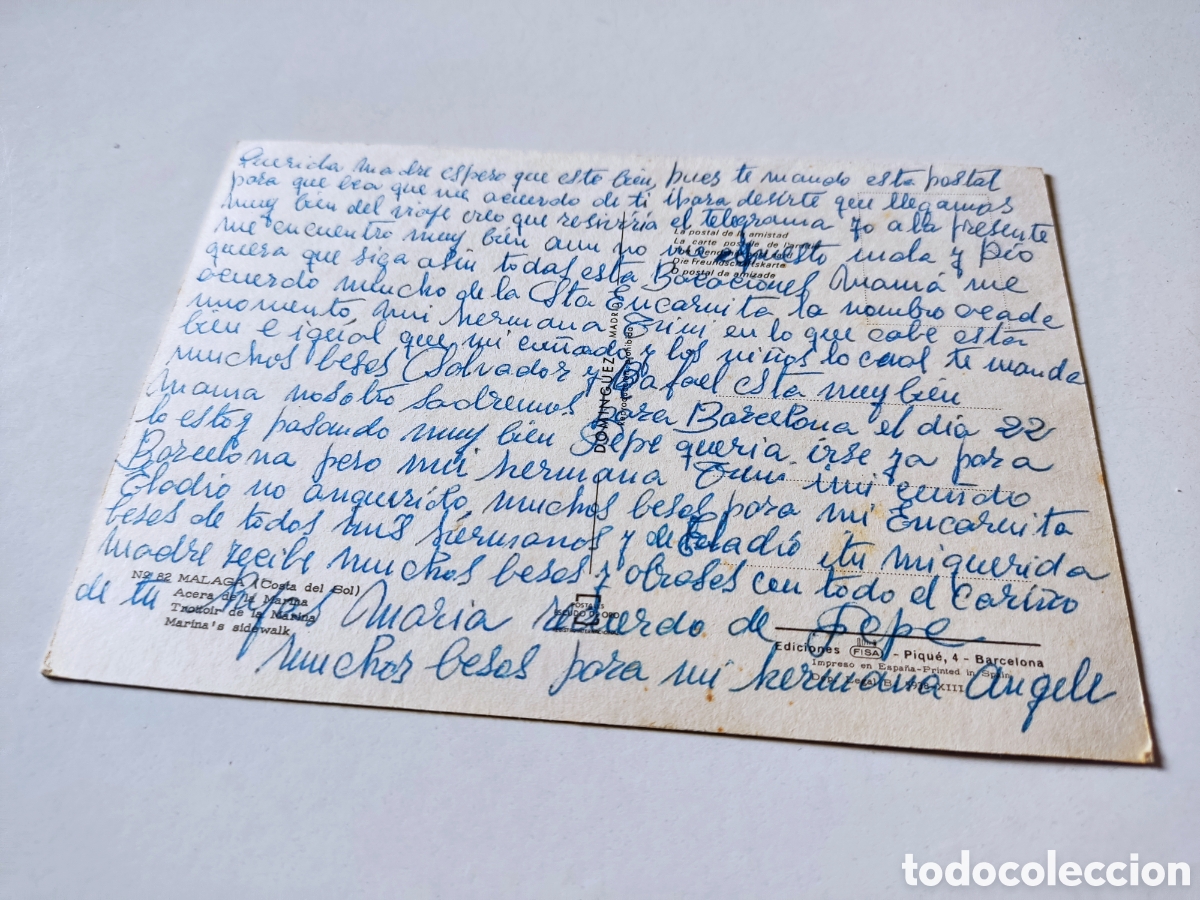 Querida Madre espero que este bien, pues te mando esta postal
para que bea que me acuerdo de ti ipara desirte que llegamos
muy bien del viaje creo que resiviria el telegrama yo ala presente
me encuentro muy bien aun no me puesto mala y Dio
quiera que siga asin todas esta Bacaciones Mamá me
acuerdo mucho de la Encarnita la nombro acada
momento, mi hermana Trini en lo que cabe esta
bien e igual que mi cuñado y los niños lo cual te manda
muchos besos Salvador y Rafael esta muy bien
Mama nosotro sadremos para Barcelona el dia 22
lo estoy pasando muy bien Pepe queria irse ya para
Barcelona pero mi hermana Trini imi cuñdo
Eladio no anquerido, muchos besos para mi Encarnita
beses de todos mis hermanos y de Eladio itu miquerida
madre recibe muchos besos y abrases con todo el cariño
de tu María recuerdo de Pepe
muchos besos para mi hermana Angele
La postal de la amistad
La carte postale de l'amitié
Die Freundschaftskarte
O postal da amizade
DOMINGUEZ - MADRID
Reproducción prohibida
Nº 82 MALAGA (Costa del Sol)
Acera de la Marina
Trottoir de la Marina
Marina's sidewalk
POSTALES
ESCUDO DE ORO
Ediciones FISA - Piqué, 4 - Barcelona
Impreso en España-Printed in Spain
Dep. Legal B. XIII
todocoleccion